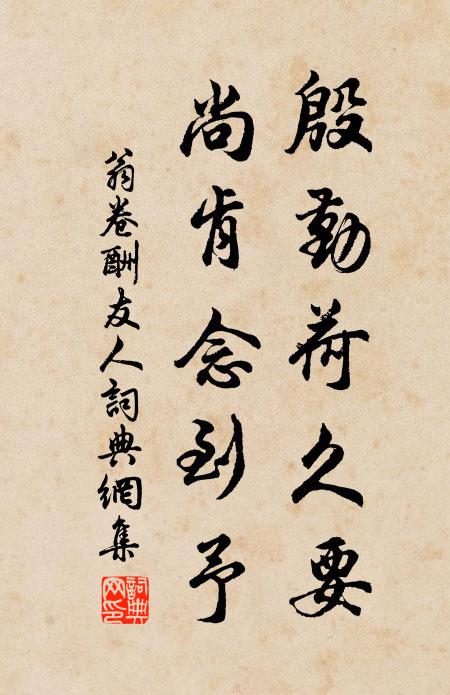 殷勤荷久要
尚肯念到予
翁卷酬友人詞典網集
詞典文印